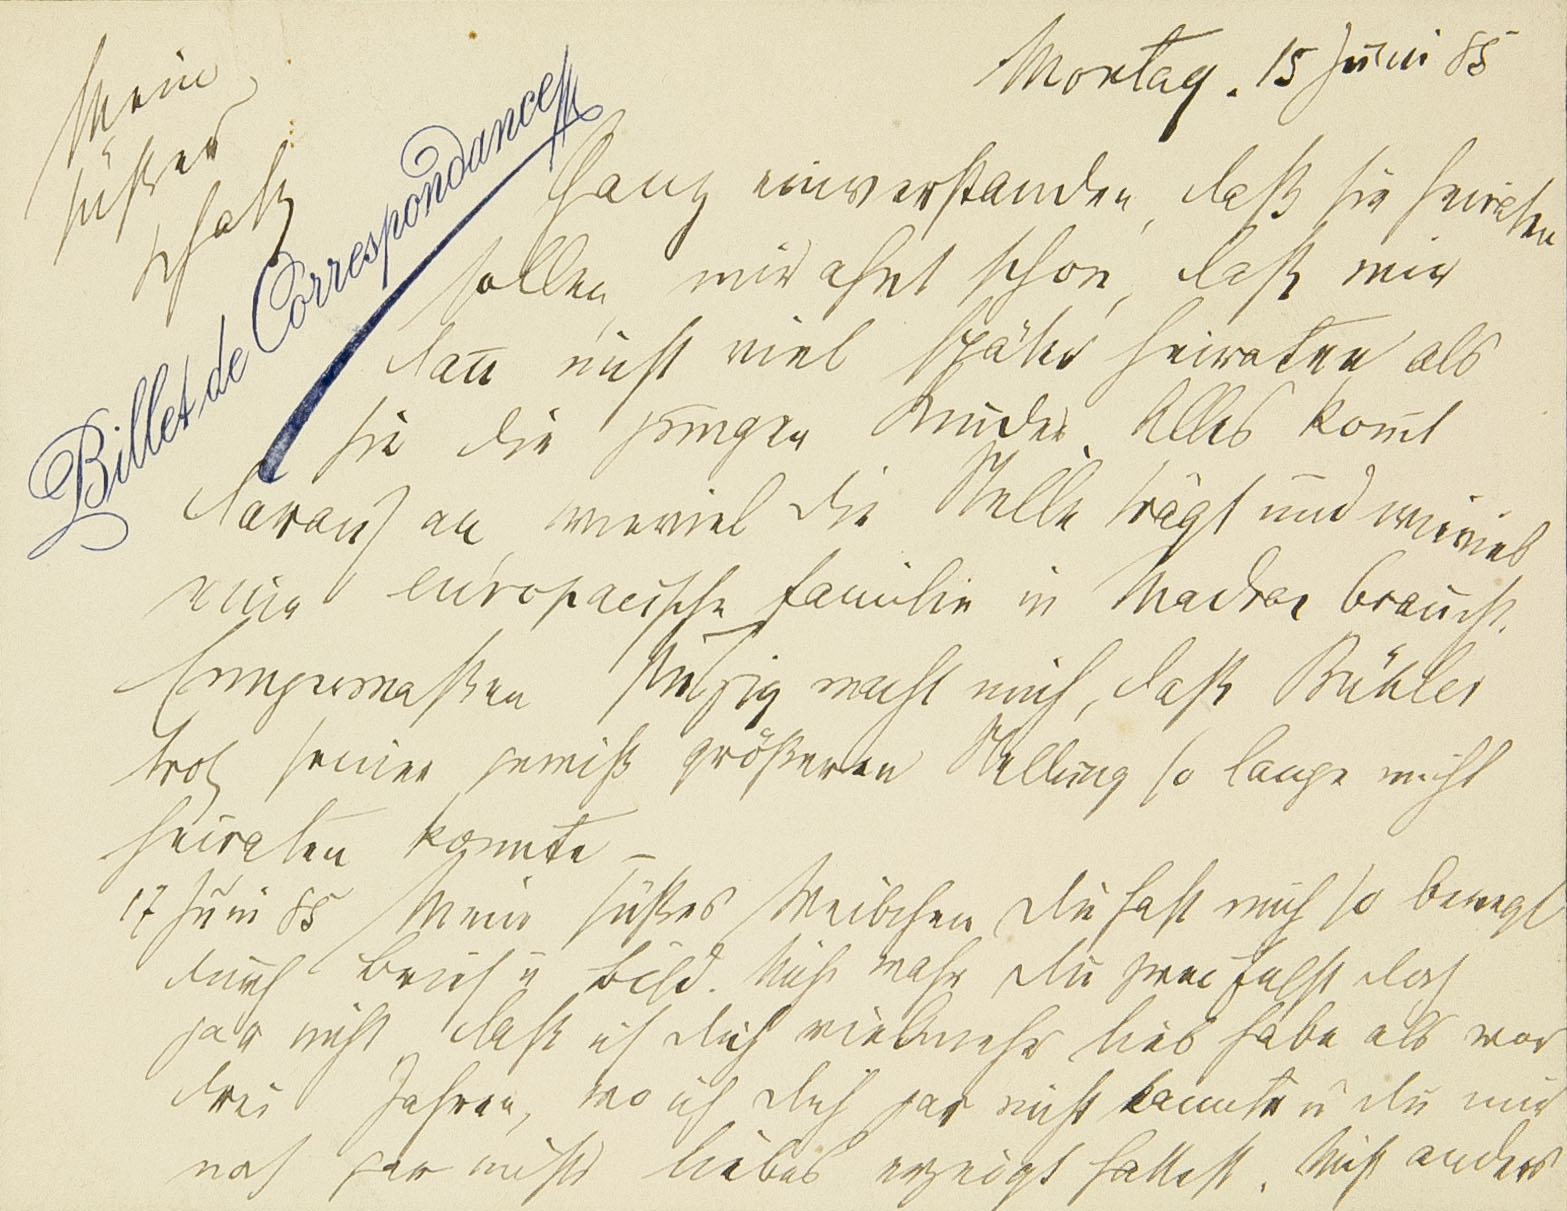 Montag. 15 Juni 85
Mein
süßer
Schatz
Billet de Correspondance
Ganz einverstanden, daß sie heirathen
sollen, mir ahnt schon, daß wir
dañ nicht viel später heiraten als
sie die jungen Kinder. Alles kom̃t
darauf an, wieviel die Stelle trägt und wieviel
eine europaeische Familie in Madras braucht.
Einigermaßen stutzig macht mich, daß Bühler
trotz seiner gewiß größeren Stellung so lange nicht
heiraten konnte –
17 Juni 85 Mein süßes Weibchen du hast mich so bewegt
durch Brief u Bild. Nicht wahr du zweifelst doch
gar nicht, daß ich dich vielmehr lieb habe als vor
drei Jahren, wo ich dich gar nicht kannte u du mir
noch gar nichts liebes erzeigt hattest. Nicht anders